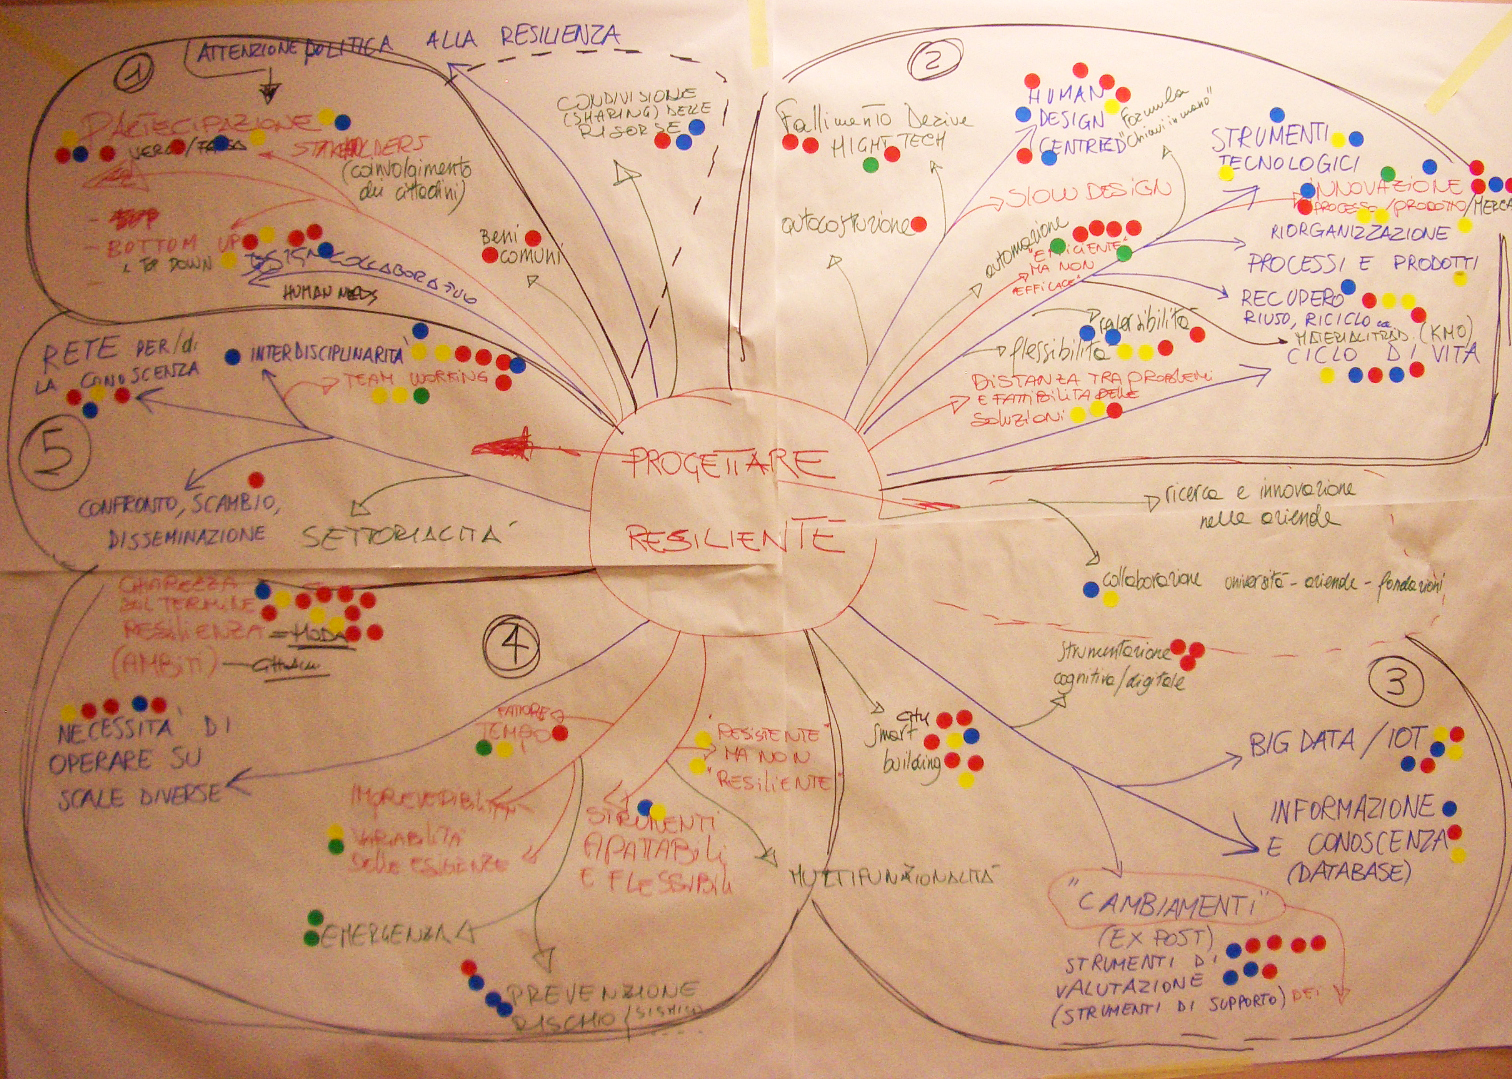 PROGETTARE
RESILIENTE
1
ATTENZIONE POLITICA ALLA RESILIENZA
PARTECIPAZIONE
VERA/FALSA
STAKHOLDERS
(coinvolgimento
dei cittadini)
- BOTTOM UP
& TOP DOWN
DESIGN COLLABORATIVO
HUMAN NEEDS
CONDIVISIONE
(SHARING) DELLE
RISORSE
Beni
comuni
2
Fallimento Derive
HIGHT TECH
autocostruzione
HUMAN
DESIGN
CENTRED
"Formula
"Chiavi in mano"
SLOW DESIGN
automazione
"EFFICIENTE"
MA NON
"EFFICACE"
STRUMENTI
TECNOLOGICI
INNOVAZIONE
PROCESSO/PRODOTTO/MERCA
RIORGANIZZAZIONE
PROCESSI E PRODOTTI
RECUPERO
RIUSO, RICICLO
MATERIALI TRAD. (KM0)
CICLO DI VITA
reversibilità
flessibilità
DISTANZA TRA PROBLEMI
E FATTIBILITA DELLE
SOLUZIONI
5
RETE PER/di
LA CONOSCENZA
INTERDISCIPLINARITA'
TEAM WORKING
CONFRONTO, SCAMBIO,
DISSEMINAZIONE
SETTORIALITA'
ricerca e innovazione
nelle aziende
collaborazione università - aziende - fondazioni
3
strumentazione
cognitiva/digitale
city
Smart
building
BIG DATA / IOT
INFORMAZIONE
E CONOSCENZA
(DATABASE)
"CAMBIAMENTI"
(EX POST)
STRUMENTI DI
VALUTAZIONE
(STRUMENTI DI SUPPORTO) DEI
4
CHIAREZZA
SUL TERMINE
RESILIENZA = MODA
(AMBITI)
NECESSITA' DI
OPERARE SU
SCALE DIVERSE
FATTORE
TEMPO
IMPREVEDIBILITA'
VARIABILITA'
delle ESIGENZE
STRUMENTI
ADATTABILI
E FLESSIBILI
"RESISTENTE"
MA NON
"RESILIENTE"
MULTIFUNZIONALITA'
EMERGENZA
PREVENZIONE
RISCHIO (SISMICO